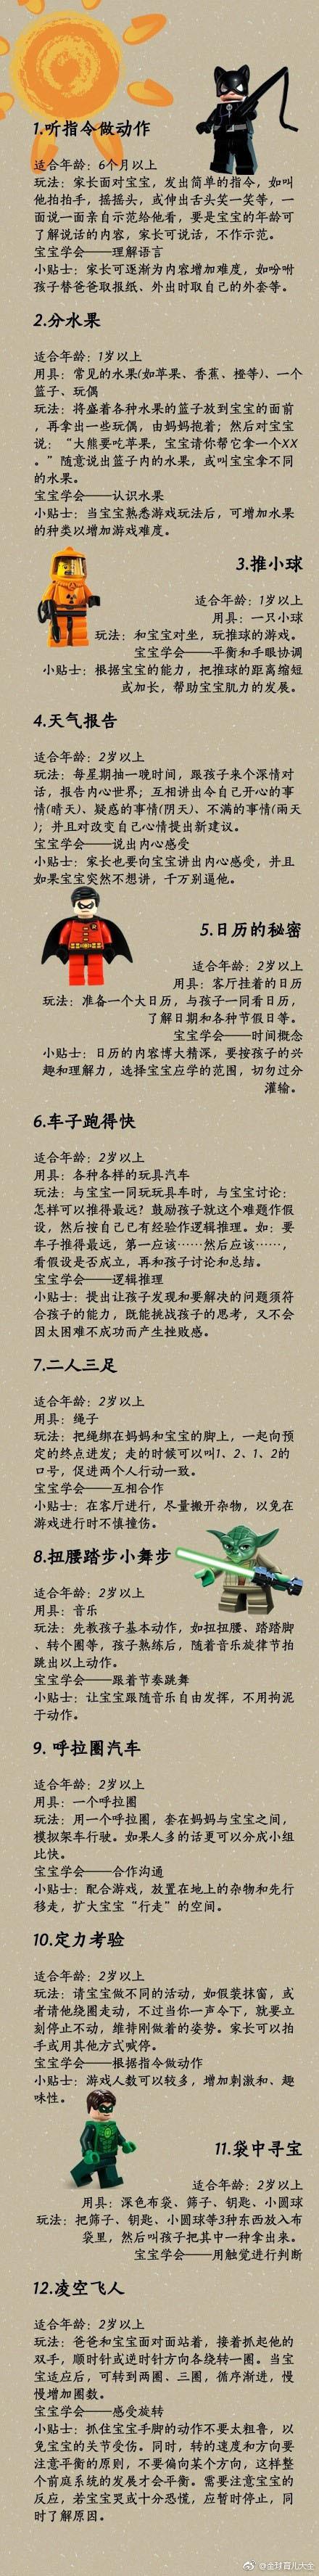 1.听指令做动作
适合年龄：6个月以上
玩法：家长面对宝宝，发出简单的指令，如叫
他拍拍手，摇摇头，或伸出舌头笑一笑等，一
面说一面亲自示范给他看，要是宝宝的年龄可
了解说话的内容，家长可说话，不作示范。
宝宝学会——理解语言
小贴士：家长可逐渐为内容增加难度，如吩咐
孩子替爸爸取报纸、外出时取自己的外套等。
2.分水果
适合年龄：1岁以上
用具：常见的水果(如苹果、香蕉、橙等)、一个
篮子、玩偶
玩法：将盛着各种水果的篮子放到宝宝的面前
，再拿出一些玩偶，由妈妈抱着；然后对宝宝
说：“大熊要吃苹果，宝宝请你帮它拿一个XX
。”随意说出篮子内的水果，或叫宝宝拿不同
的水果。
宝宝学会——认识水果
小贴士：当宝宝熟悉游戏玩法后，可增加水果
的种类以增加游戏难度。
3.推小球
适合年龄：1岁以上
用具：一只小球
玩法：和宝宝对坐，玩推球的游戏。
宝宝学会——平衡和手眼协调
小贴士：根据宝宝的能力，把推球的距离缩短
或加长，帮助宝宝肌力的发展。
4.天气报告
适合年龄：2岁以上
玩法：每星期抽一晚时间，跟孩子来个深情对
话，报告内心世界；互相讲出令自己开心的事
情(晴天)、疑惑的事情(阴天)、不满的事情(雨天
)；并且对改变自己心情提出新建议。
宝宝学会——说出内心感受
小贴士：家长也要向宝宝讲出内心感受，并且
如果宝宝突然不想讲，千万别逼他。
5.日历的秘密
适合年龄：2岁以上
用具：客厅挂着的日历
玩法：准备一个大日历，与孩子一同看日历，
了解日期和各种节假日等。
宝宝学会——时间概念
小贴士：日历的内容博大精深，要按孩子的兴
趣和理解力，选择宝宝应学的范围，切勿过分
灌输。
6.车子跑得快
适合年龄：2岁以上
用具：各种各样的玩具汽车
玩法：与宝宝一同玩玩具车时，与宝宝讨论：
怎样可以推得最远？鼓励孩子就这个难题作假
设，然后按自己已有经验作逻辑推理。如：要
车子推得最远，第一应该……然后应该……，
看假设是否成立，再和孩子讨论和总结。
宝宝学会——逻辑推理
小贴士：提出让孩子发现和要解决的问题须符
合孩子的能力，既能挑战孩子的思考，又不会
因太困难不成功而产生挫败感。
7.二人三足
适合年龄：2岁以上
用具：绳子
玩法：把绳绑在妈妈和宝宝的脚上，一起向预
定的终点进发；走的时候可以叫1、2、1、2的
口号，促进两个人行动一致。
宝宝学会——互相合作
小贴士：在客厅进行，尽量搬开杂物，以免在
游戏进行时不慎撞伤。
8.扭腰踏步小舞步
适合年龄：2岁以上
用具：音乐
玩法：先教孩子基本动作，如扭扭腰、踏踏脚
、转个圈等，孩子熟练后，随着音乐旋律节拍
跳出以上动作。
宝宝学会——跟着节奏跳舞
小贴士：让宝宝跟随音乐自由发挥，不用拘泥
于动作。
9. 呼拉圈汽车
适合年龄：2岁以上
用具：一个呼拉圈
玩法：用一个呼拉圈，套在妈妈与宝宝之间，
模拟架车行驶。如果人多的话更可以分成小组
比快。
宝宝学会——合作沟通
小贴士：配合游戏，放置在地上的杂物和先行
移走，扩大宝宝“行走”的空间。
10.定力考验
适合年龄：2岁以上
玩法：请宝宝做不同的活动，如假装抹窗，或
者请他绕圈走动，不过当你一声令下，就要立
刻停止不动，维持刚做着的姿势。家长可以拍
手或用其他方式喊停。
宝宝学会——根据指令做动作
小贴士：游戏人数可以较多，增加刺激和、趣
味性。
11.袋中寻宝
适合年龄：2岁以上
用具：深色布袋、筛子、钥匙、小圆球
玩法：把筛子、钥匙、小圆球等3种东西放入布
袋里，然后叫孩子把其中一种拿出来。
宝宝学会——用触觉进行判断
12.凌空飞人
适合年龄：2岁以上
玩法：爸爸和宝宝面对面站着，接着抓起他的
双手，顺时针或逆时针方向各绕转一圈。当宝
宝适应后，可转到两圈、三圈，循序渐进，慢
慢增加圈数。
宝宝学会——感受旋转
小贴士：抓住宝宝手脚的动作不要太粗鲁，以
免宝宝的关节受伤。同时，转的速度和方向要
注意平衡的原则，不要偏向某个方向，这样整
个前庭系统的发展才会平衡。需要注意宝宝的
反应，若宝宝哭或十分恐慌，应暂时停止，同
时了解原因。
@金球育儿大全